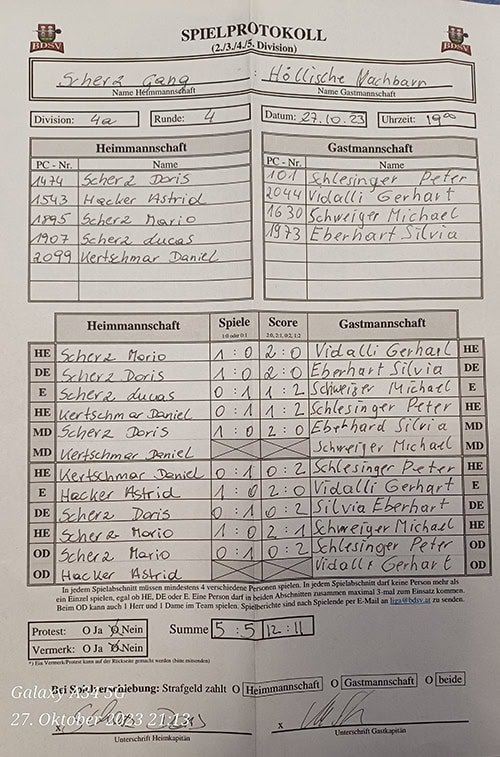 SPIELPROTOKOLL
(2./3./4./5. Division)
BDSV BDSV
Scherz Gang : Höllische Nachbarn
Name Heimmannschaft Name Gastmannschaft
Division: 4a Runde: 4 Datum: 27.10.23 Uhrzeit: 19⁰⁰
Heimmannschaft Gastmannschaft
PC - Nr. Name PC - Nr. Name
1474 Scherz Doris 101 Schlesinger Peter
1543 Hacker Astrid 2044 Vidalli Gerhart
1895 Scherz Mario 1630 Schweiger Michael
1907 Scherz Lucas 1973 Eberhart Silvia
2099 Kertschmar Daniel
Heimmannschaft Spiele Score Gastmannschaft
1:0 oder 0:1 2:0, 2:1, 0:2, 1:2
HE Scherz Mario 1 : 0 2 : 0 Vidalli Gerhart HE
DE Scherz Doris 1 : 0 2 : 0 Eberhart Silvia DE
E Scherz Lucas 0 : 1 1 : 2 Schweiger Michael E
HE Kertschmar Daniel 0 : 1 1 : 2 Schlesinger Peter HE
MD Scherz Doris 1 : 0 2 : 0 Eberhard Silvia MD
MD Kertschmar Daniel Schweiger Michael MD
HE Kertschmar Daniel 0 : 1 0 : 2 Schlesinger Peter HE
E Hacker Astrid 1 : 0 2 : 0 Vidalli Gerhart E
DE Scherz Doris 0 : 1 0 : 2 Silvia Eberhart DE
HE Scherz Mario 1 : 0 2 : 1 Schweiger Michael HE
OD Scherz Mario 0 : 1 0 : 2 Schlesinger Peter OD
OD Hacker Astrid Vidalli Gerhart OD
In jedem Spielabschnitt müssen mindestens 4 verschiedene Personen spielen. In jedem Spielabschnitt darf keine Person mehr als
ein Einzel spielen, egal ob HE, DE oder E. Eine Person darf in beiden Abschnitten zusammen maximal 3-mal zum Einsatz kommen.
Beim OD kann auch 1 Herr und 1 Dame im Team spielen. Spielberichte sind nach Spielende per E-Mail an liga@bdsv.at zu senden.
Protest: O Ja O Nein Summe 5 : 5 12 : 11
Vermerk: O Ja O Nein
*) Ein Vermerk/Protest kann auf der Rückseite gemacht werden (bitte ankreuzen)
Bei Spielverschiebung: Strafgeld zahlt O Heimmannschaft O Gastmannschaft O beide
Galaxy A34 5G
27. Oktober 2023 21:13
x Scherz Doris x
Unterschrift Heimkapitän Unterschrift Gastkapitän